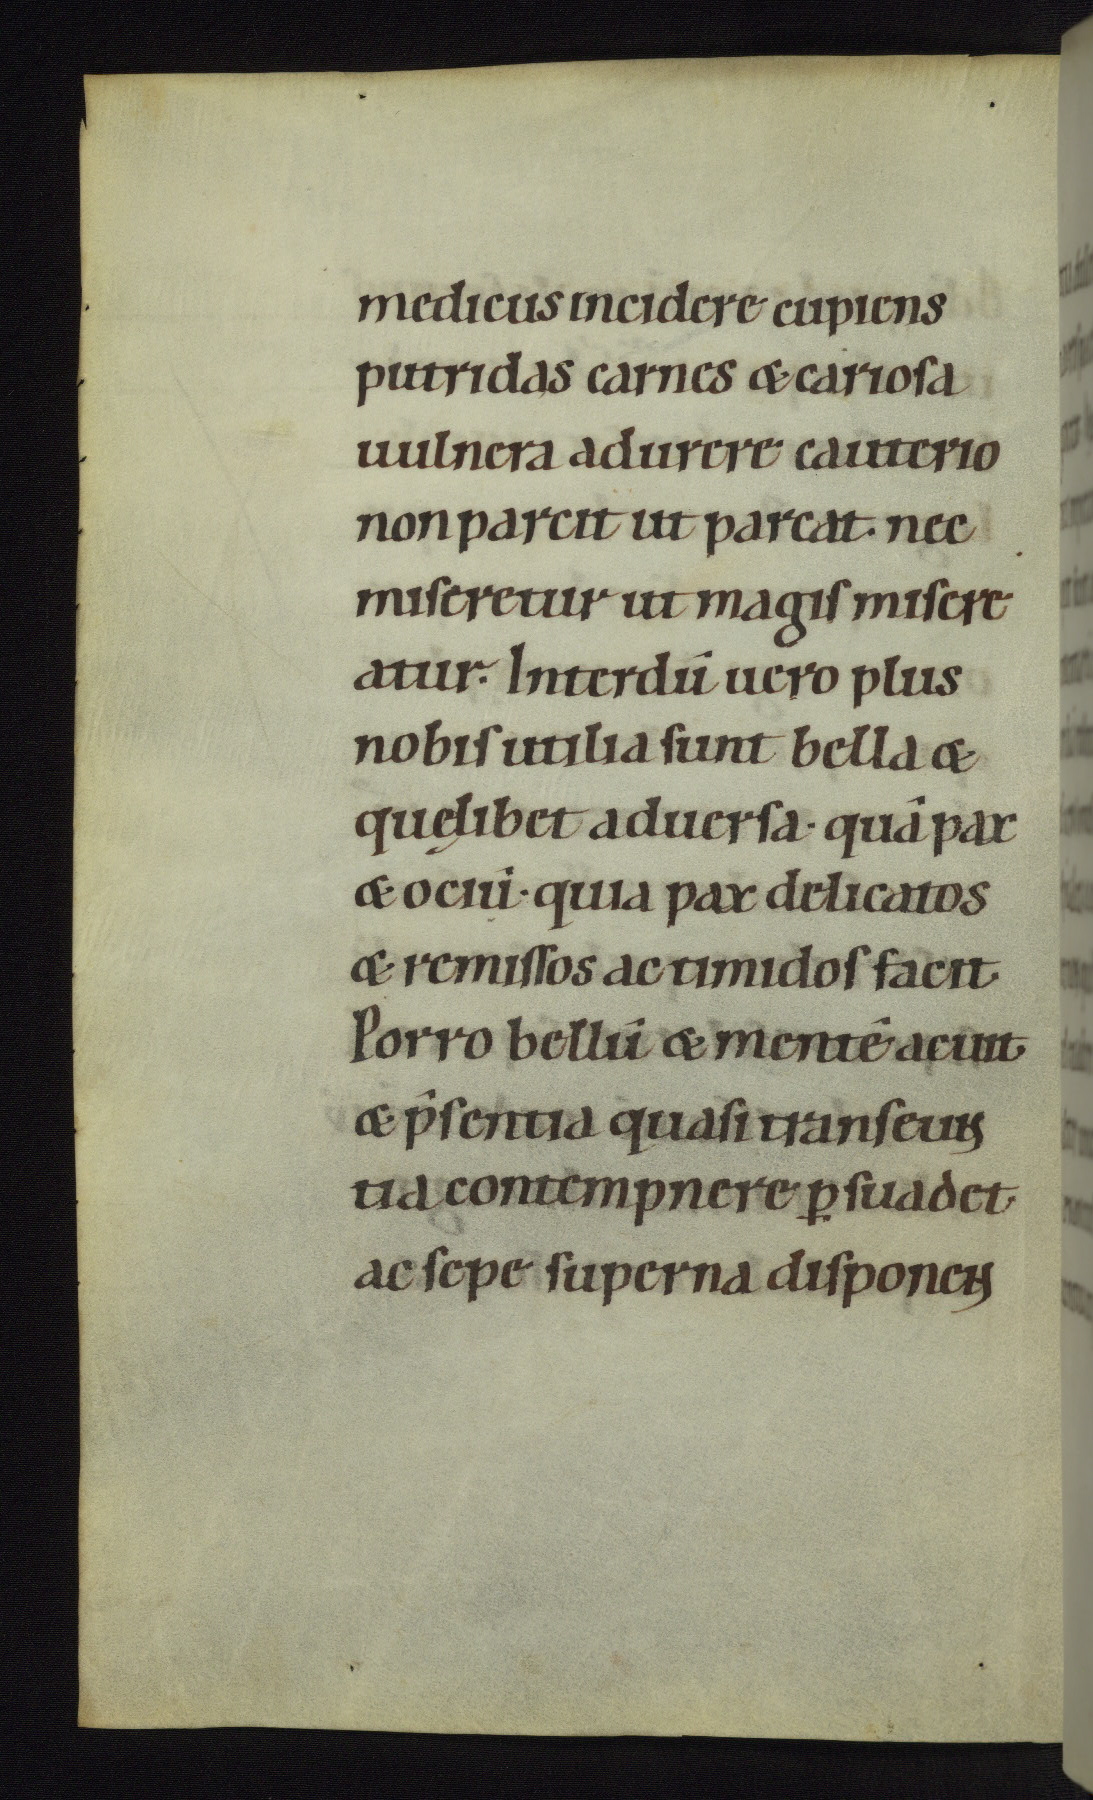 medicus incidere cupiens
putridas carnes & cariosa
uulnera adurere cauterio
non parcit ut parcat. nec
miseretur ut magis misere
atur. Interdū uero plus
nobis utilia sunt bella &
quęlibet aduersa. quā pax
& ociū. quia pax delicatos
& remissos ac timidos facit
Porro bellū & mentē acuit
& p̄sentia quasi transeun
tia contempnere ꝑsuadet
ac sepe superna disponen